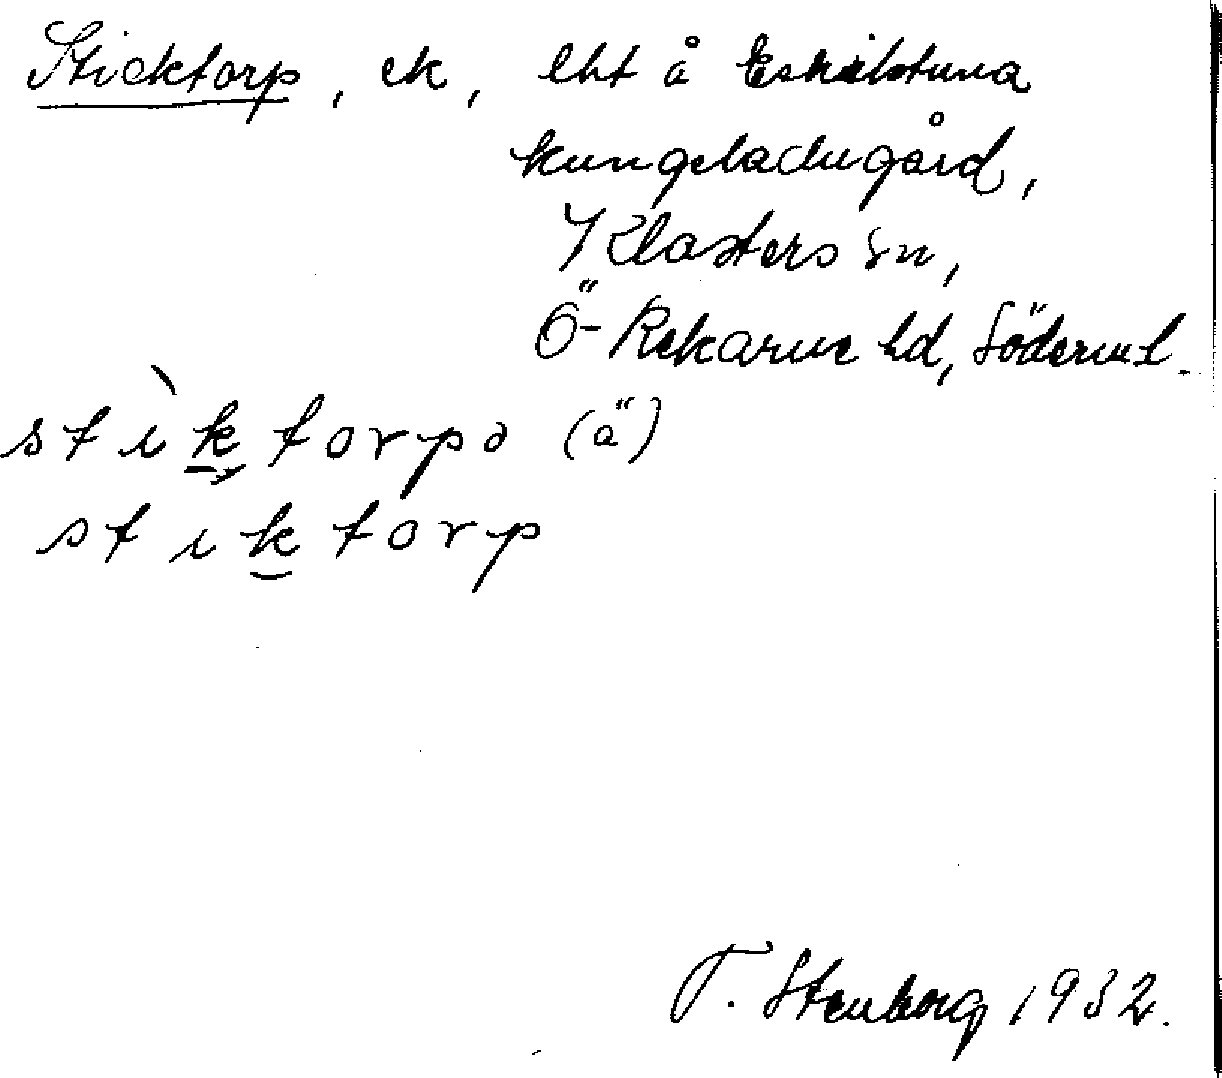 Sticktorp, ek, lht å Eskilstuna
kungsladugård,
Klosters sn,
Ö-Rekarne hd, Söderml.
stìktorpə (ä)
stiktorp
T. Stenborg 1932.